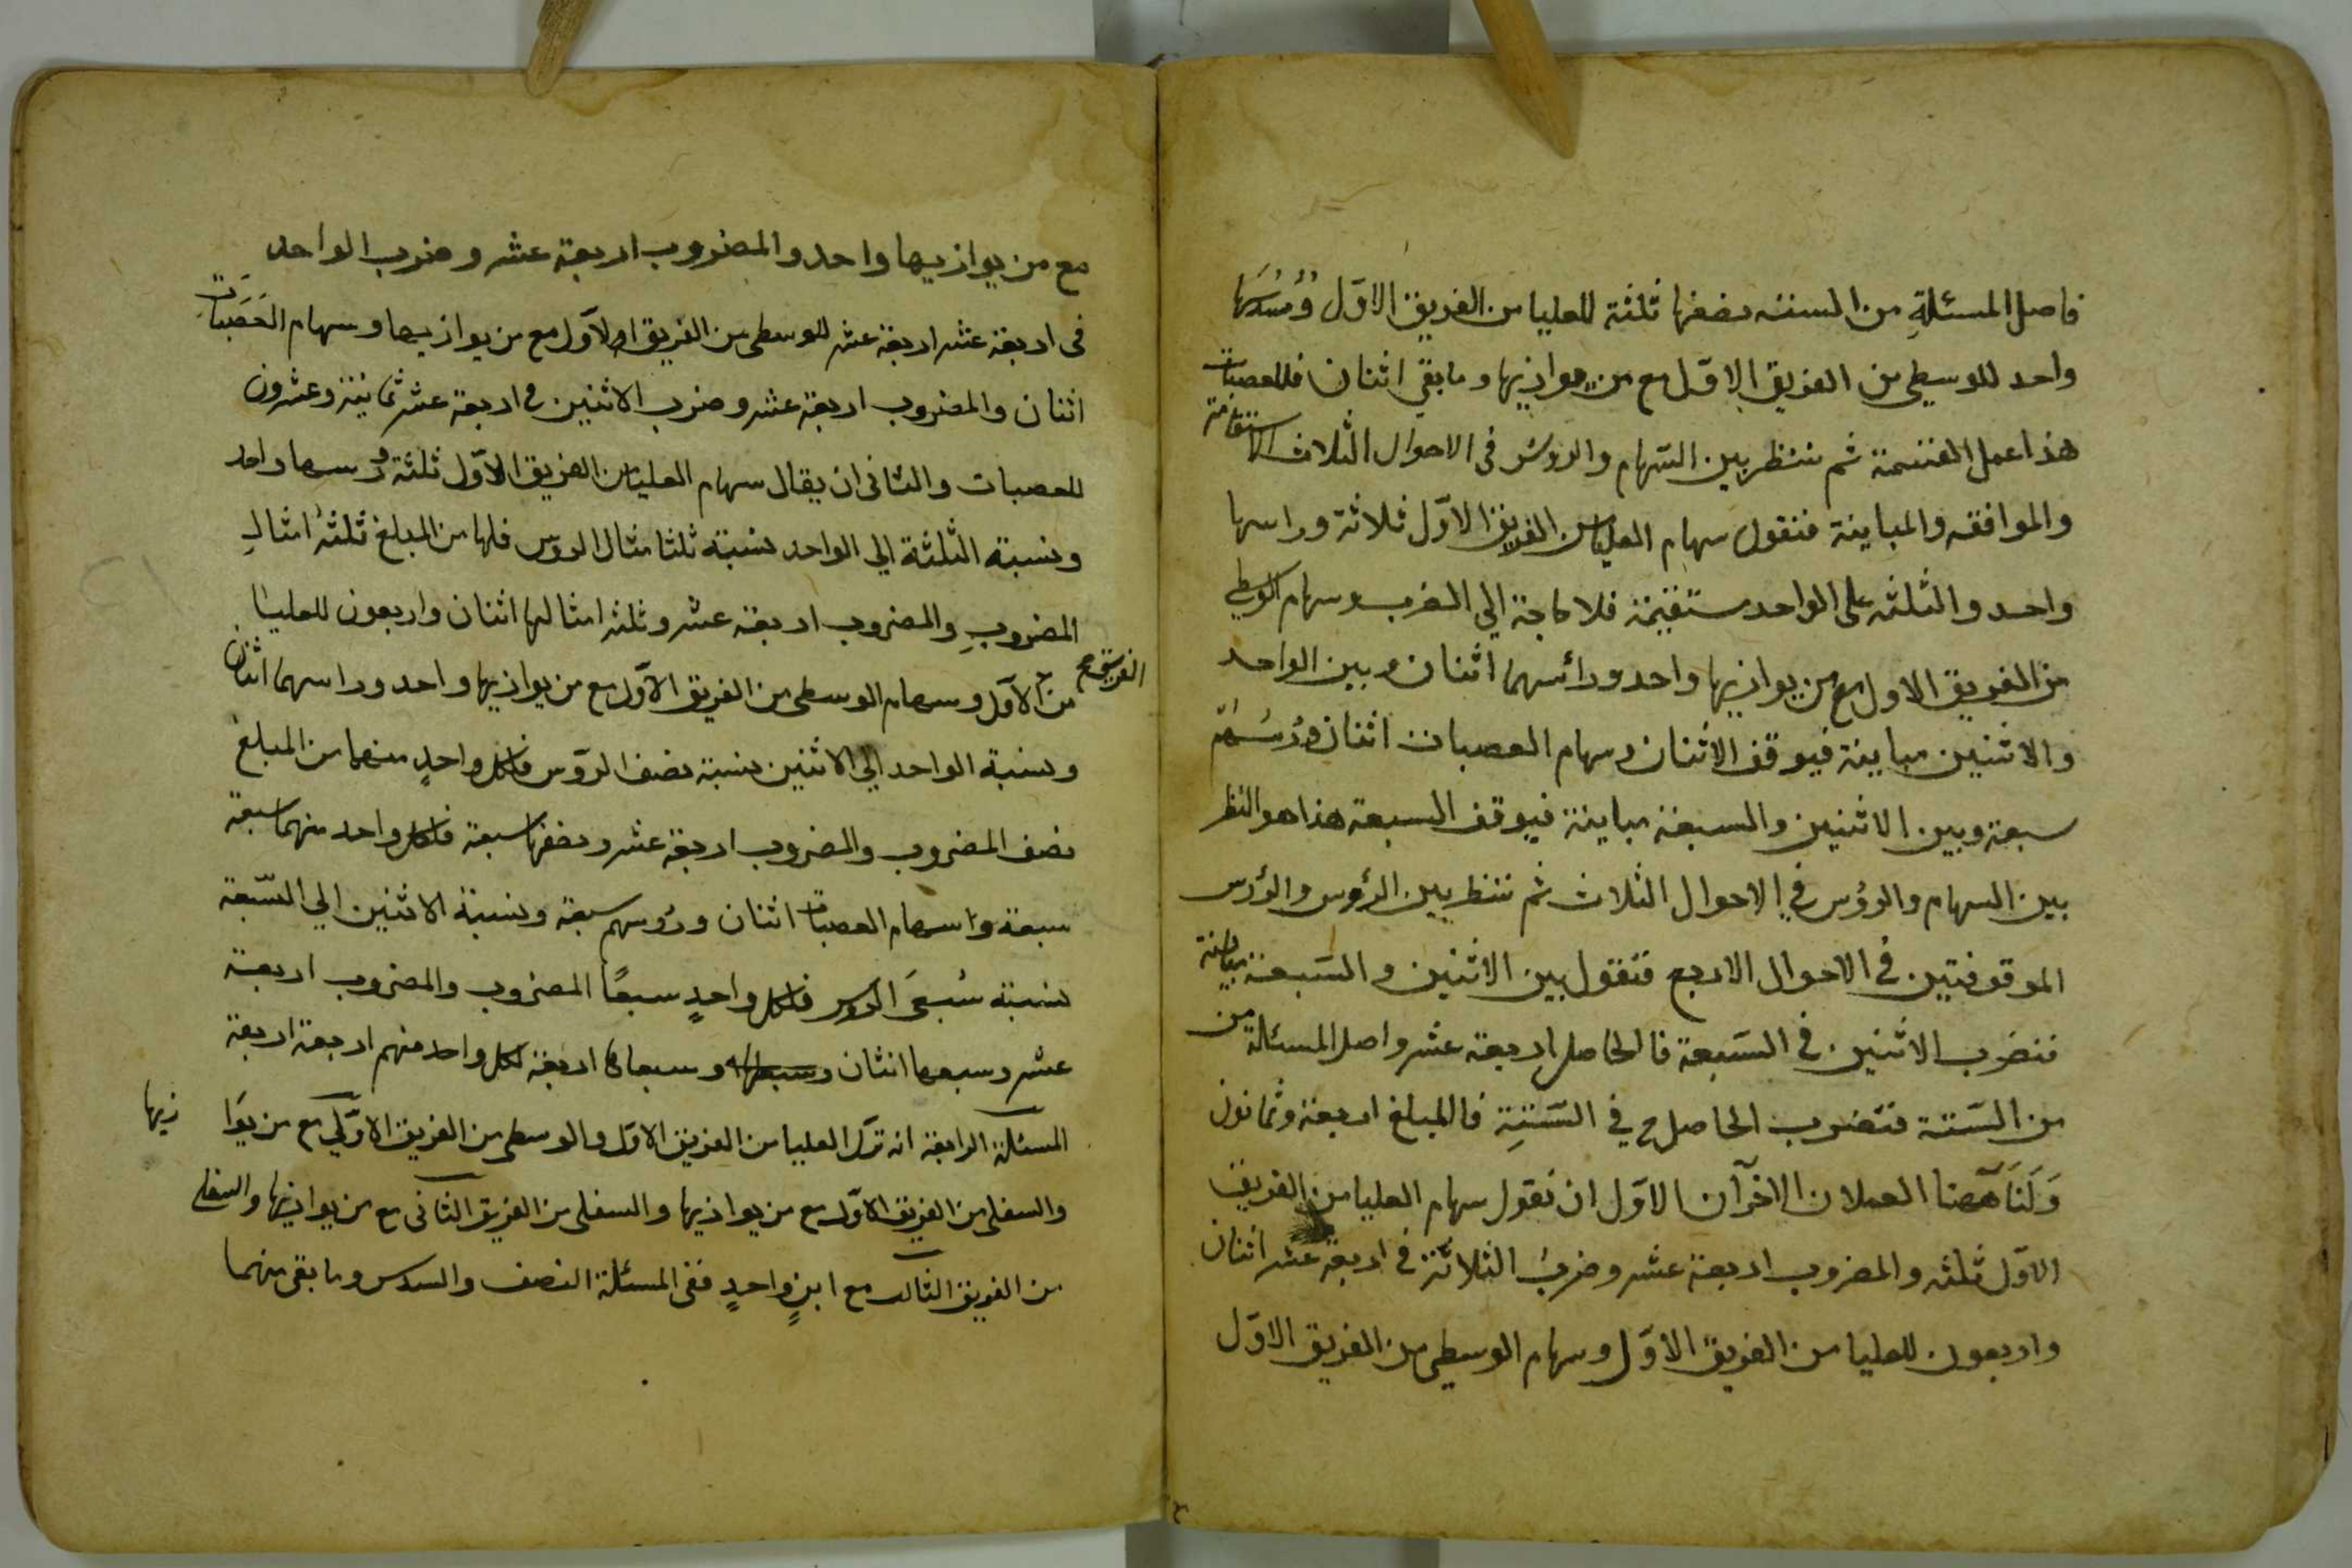 فاصل المسئلةِ من الستته نصفها ثلثة للعليا من الفريق الاوّل وُسُدُسُها
واحد للوسطي من الفريق الاوّل مع من يوازيها وما بقي اثنان فللعصبات
هذا عمل القسمة ثم ننظر بين السّهام والروس في الاحوال الثلاث الاستقامة
والموافقه والمباينة فنقول سهام العليا من الفريق الاوّل ثلاثة وراسها
واحد والثلثه على الواحد مستقيمة فلا حاجة الي الضرب وسهام الوسطي
من الفريق الاول مع من يوازيها واحد ورائسهما اثنان وبين الواحد
والاثنين مباينة فيوقف الاثنان وسهام العصبات اثنان ورُسُهُم
سبعة وبين الاثنين والسبعة مباينة فيوقف السبعة هذا هو النظر
بين السهام والرؤس في الاحوال الثلاث ثم ننظر بين الرؤس والرؤس
الموقوفتين في الاحوال الاربع فنقول بين الاثنين والسّبعة مباينة
فنضرب الاثنين في السّبعة فالحاصل اربعة عشر واصل المسئلة من
من السّتة فنضرب الحاصل في السّتةِ فالمبلغ اربعة وثمانون
وَلَنَا ههنا العملان الاخرآن الاوّل ان نقول سهام العليا من الفريق
الاوّل ثلثه والمضروب اربعة عشر وضربُ الثلاثة في اربعة عشر اثنان
واربعون للعليا من الفريق الاوّل وسهام الوسطي من الفريق الاوّل
مع من يوازيها واحد والمضروب اربعة عشر وضرب الواحد
في اربعة عشر اربعة عشر للوسطى من الفريق الاوّل مع من يوازيها وسهام العَصَبَات
اثنان والمضروب اربعة عشر وضرب الاثنين في اربعة عشر ثمانية وعشرون
للعصبات والثاني ان يقال سهام العليا من الفريق الاوّل ثلثة ورسها واحد
ونسبة الثلثة الي الواحد نسبة ثلثا مثال الروس فلها من المبلغ ثلثةُ امثالِ
المضروبِ والمضروب اربعة عشر وثلثه امثالها اثنان واربعون للعليا
من الفريق الاوّل وسهام الوسطى من الفريق الاوّل مع من يوازيها واحد وراسهما اثنان
ونسبة الواحد الي الاثنين نسبة نصف الروّس فلكل واحدٍ منهما من المبلغ
نصف المضروب والمضروب اربعة عشر ونصفها سبعة فلكل واحد منهما سبعة
سبعة واسهام العصبات اثنان ورُوسهم سبعة ونسبة الاثنين الي السّبعة
نسبة سُبعَى الروس فلكل واحدٍ سبعًا المضروب والمضروب اربعة
عشر وسبعها اثنان وسبعاها اربعة لكل واحد منهم اربعة اربعة
المسئلة الرابعة ان ترك العليا من الفريق الاوّل والوسطى من الفريق الاوّل مع من يوَازيها
والسفلى من الفريق الاوّل مع من يوازيها والسفلى من الفريق الثانى مع من يوازيها والسفلى
من الفريق الثالث مع ابنٍ واحدٍ ففى المسئلة النصف والسدس وما بقى منهما